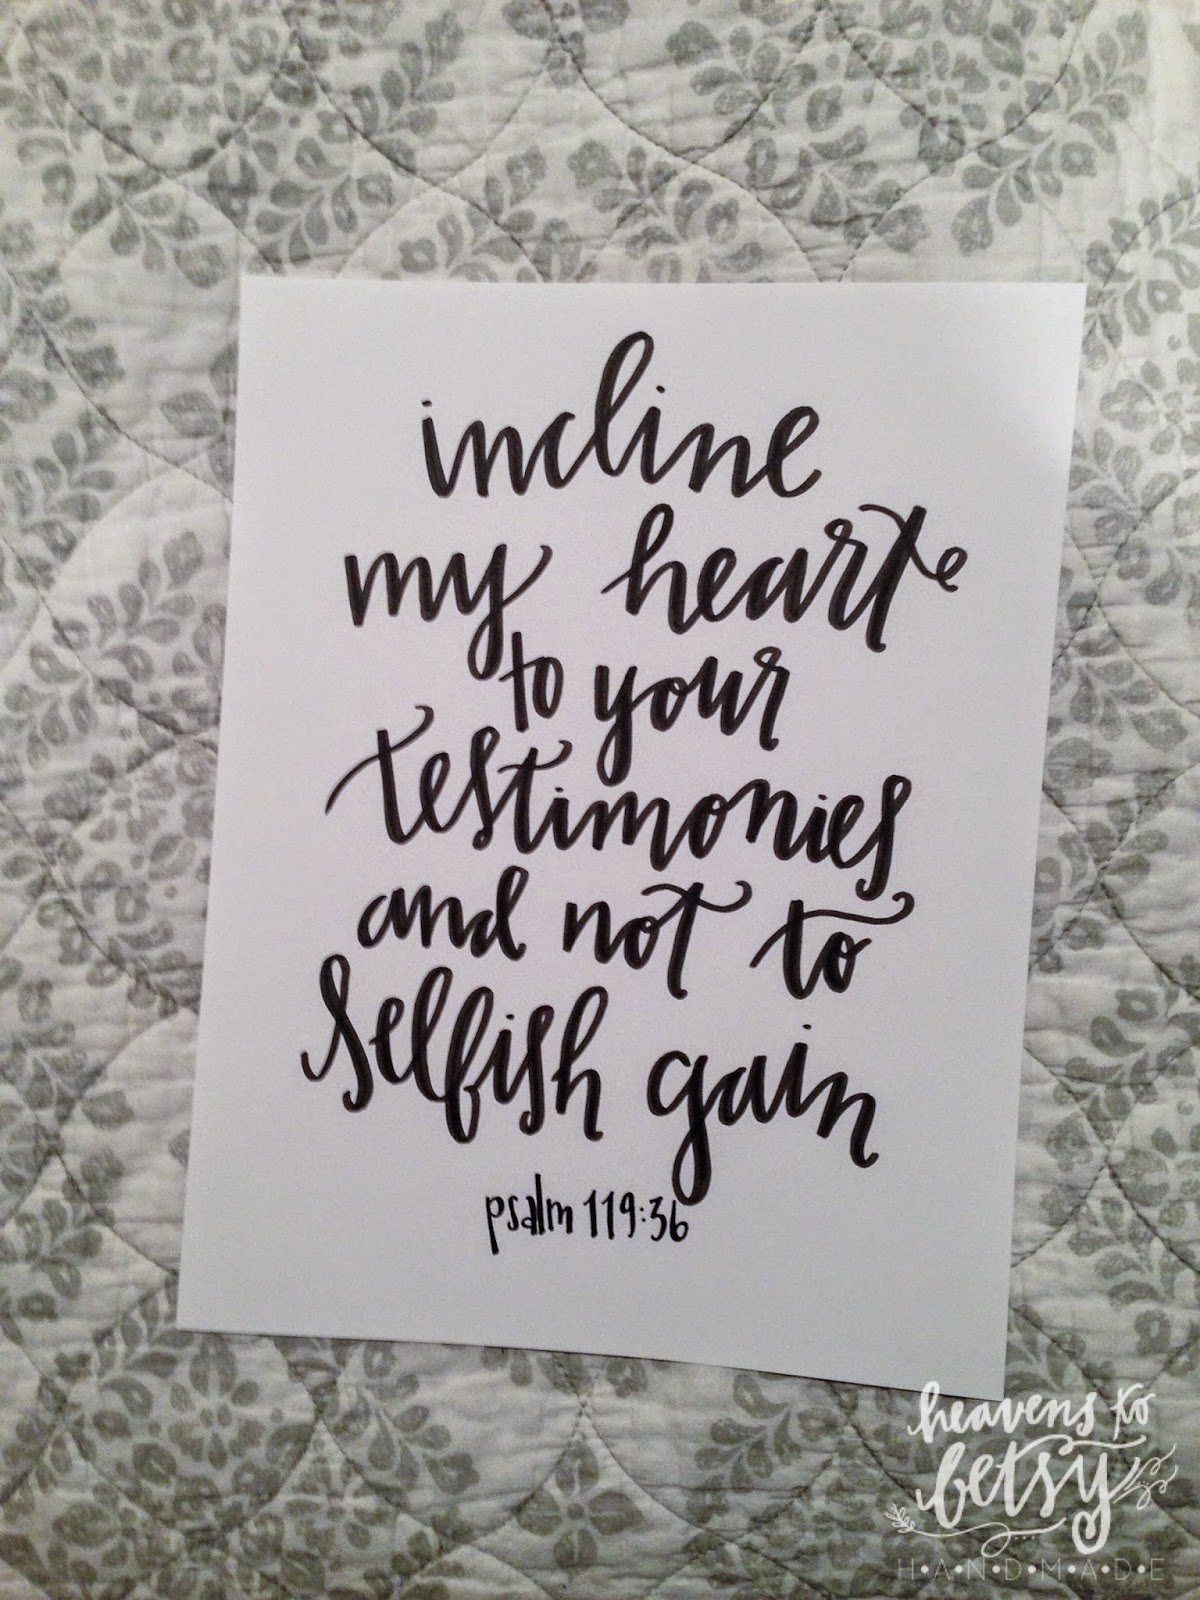 incline
my heart
to your
testimonies
and not to
selfish gain
psalm 119:36
heavens to
betsy
H•A•N•D•M•A•D•E